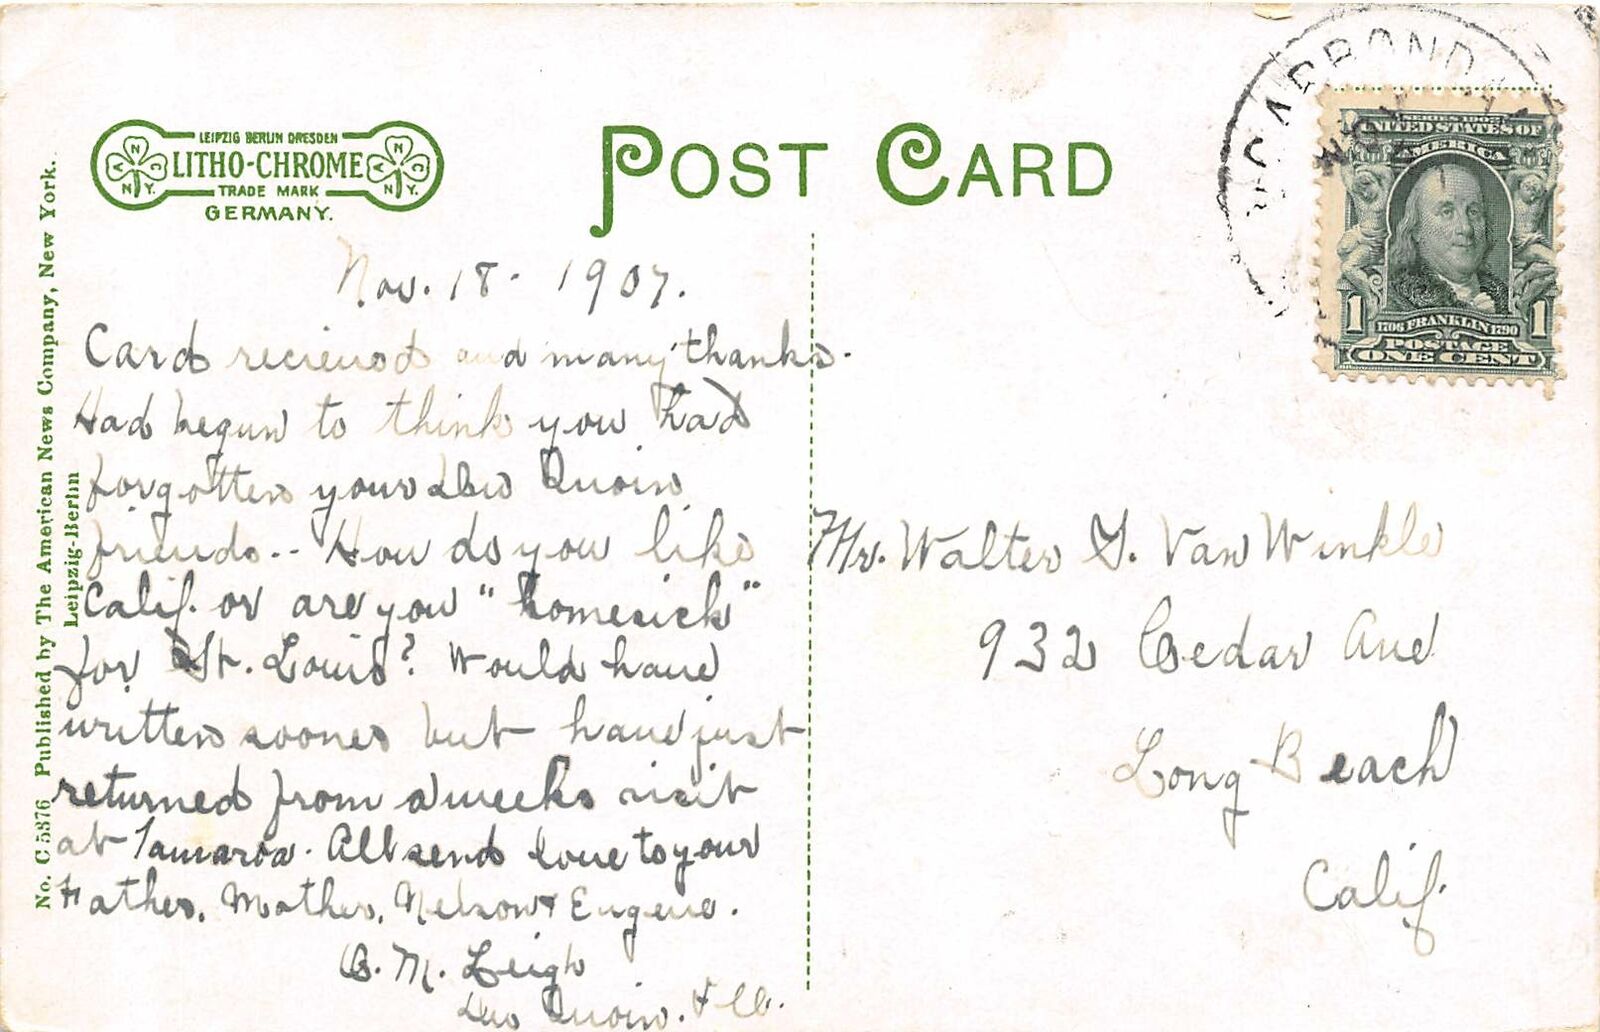 LEIPZIG BERLIN DRESDEN
LITHO-CHROME
TRADE MARK
GERMANY.
A N C
N Y.
A N C
N Y.
POST CARD
CARBONDA
SERIES 1902
UNITED STATES OF
AMERICA
1 1
1706 FRANKLIN 1790
POSTAGE
ONE CENT
No. C 5376 Published by The American News Company, New York.
Leipzig-Berlin
Nov. 18 - 1907.
Card recieved and many thanks.
Had begun to think you had
forgotten your Du Quoin
friends -- How do you like
Calif. or are you "homesick"
for St. Louis? Would have
written sooner but have just
returned from a weeks visit
at Tamaroa. All send love to your
Father, Mother, Nelson & Eugene.
B. M. Leigh
Du Quoin. Ill.
Mr. Walter G. Van Winkle
932 Cedar Ave
Long Beach
Calif.